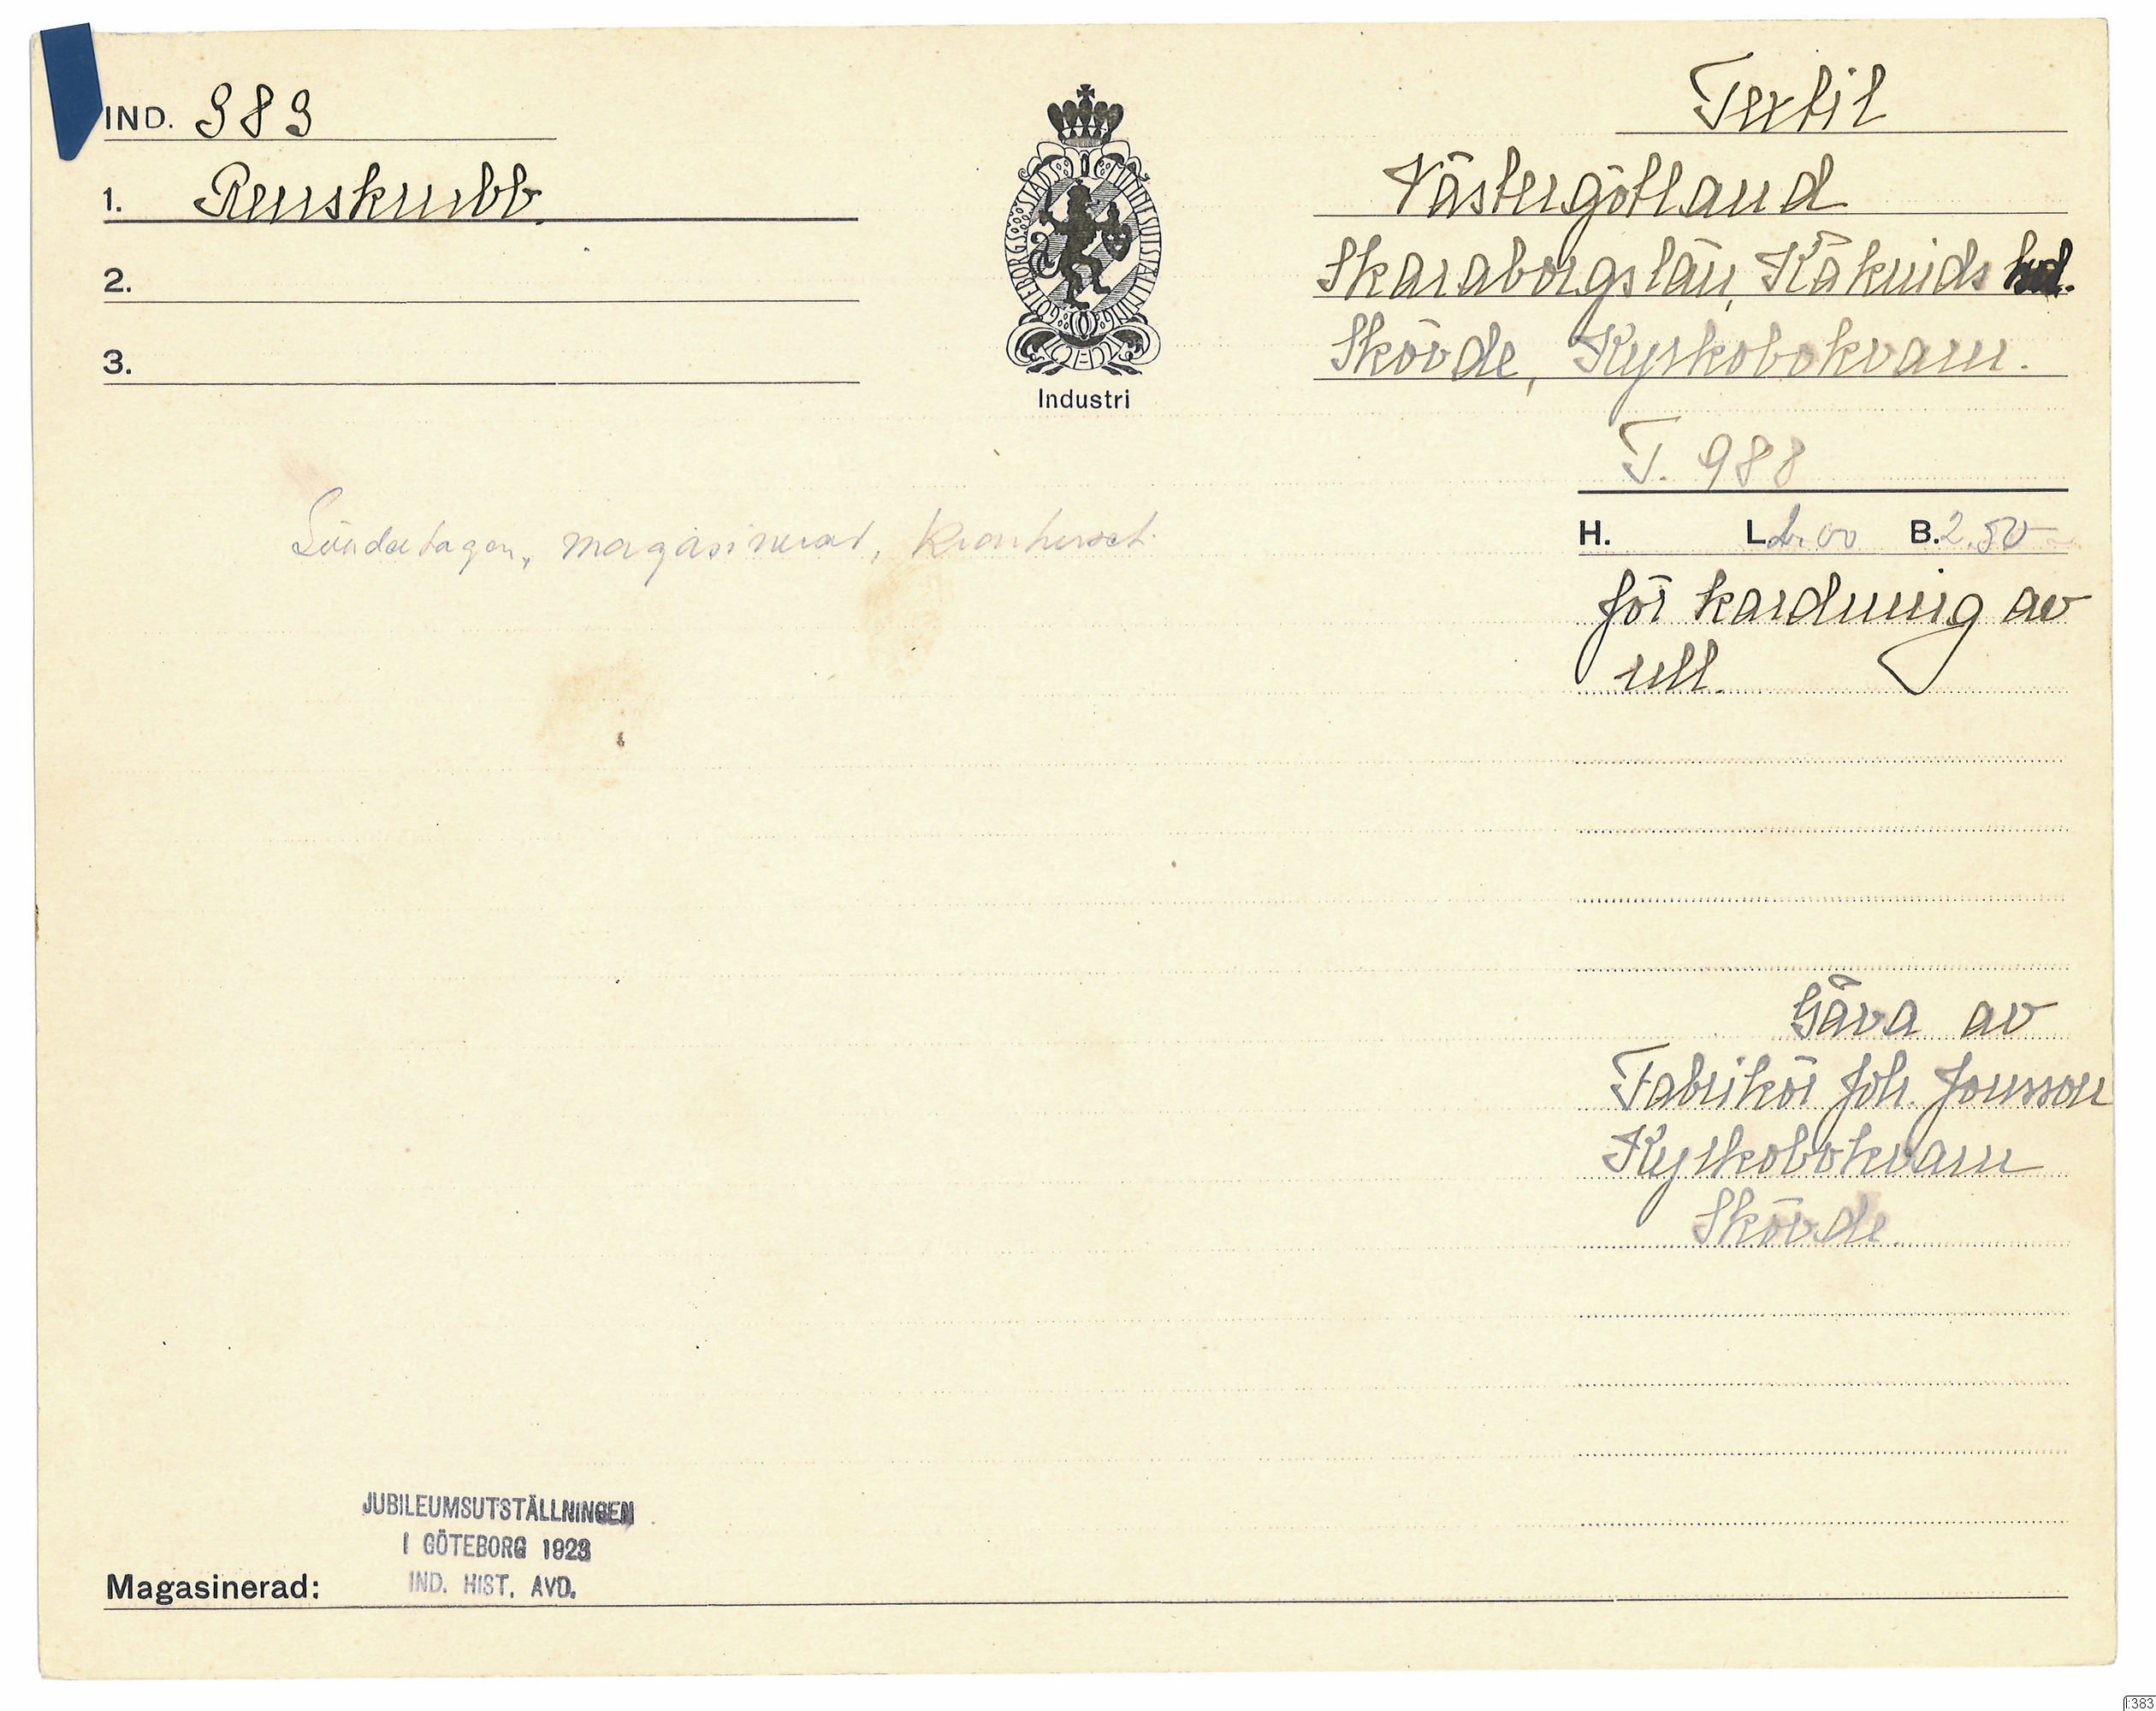 IND. 383
1. Renskrubb.
2.
3.
GÖTEBORGS STADS MINNESUTSTÄLLNING
Industri
Textil
Västergötland
Skaraborgs län, Kåkinds hd.
Skövde, Kyrkobokvarn.
T. 988
H. L. 2.00 B. 2.50
för kardning av
ull.
Söndertagen, magasinerat, Kronhuset.
Gåva av
Fabrikör Joh. Jonsson
Kyrkobokvarn
Skövde.
JUBILEUMSUTSTÄLLNINGEN
I GÖTEBORG 1923
IND. HIST. AVD.
Magasinerad:
I:383